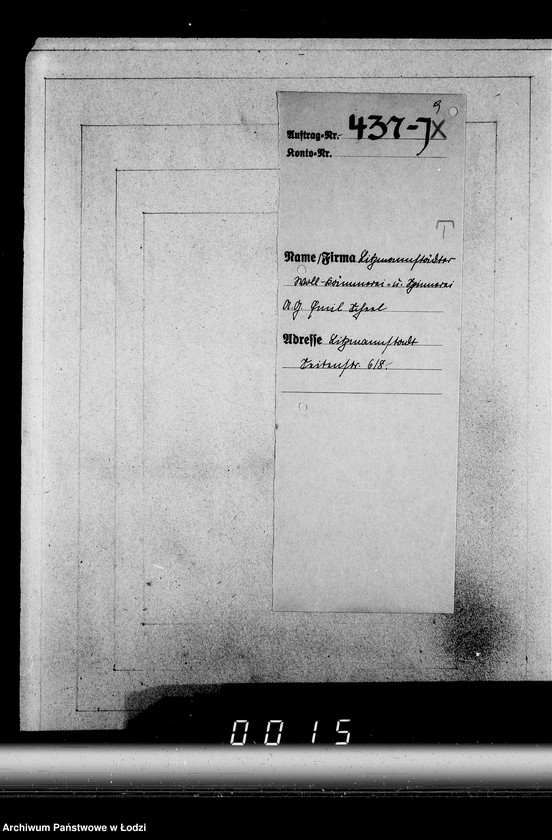 9
Auftrag-Nr. 437-J X
Konto-Nr.
T
Name/Firma Litzmannstädter
Woll-Kämmerei-u. Spinnerei
A.G. Emil
Adresse Litzmannstadt
6/8.
0015
Archiwum Państwowe w Łodzi